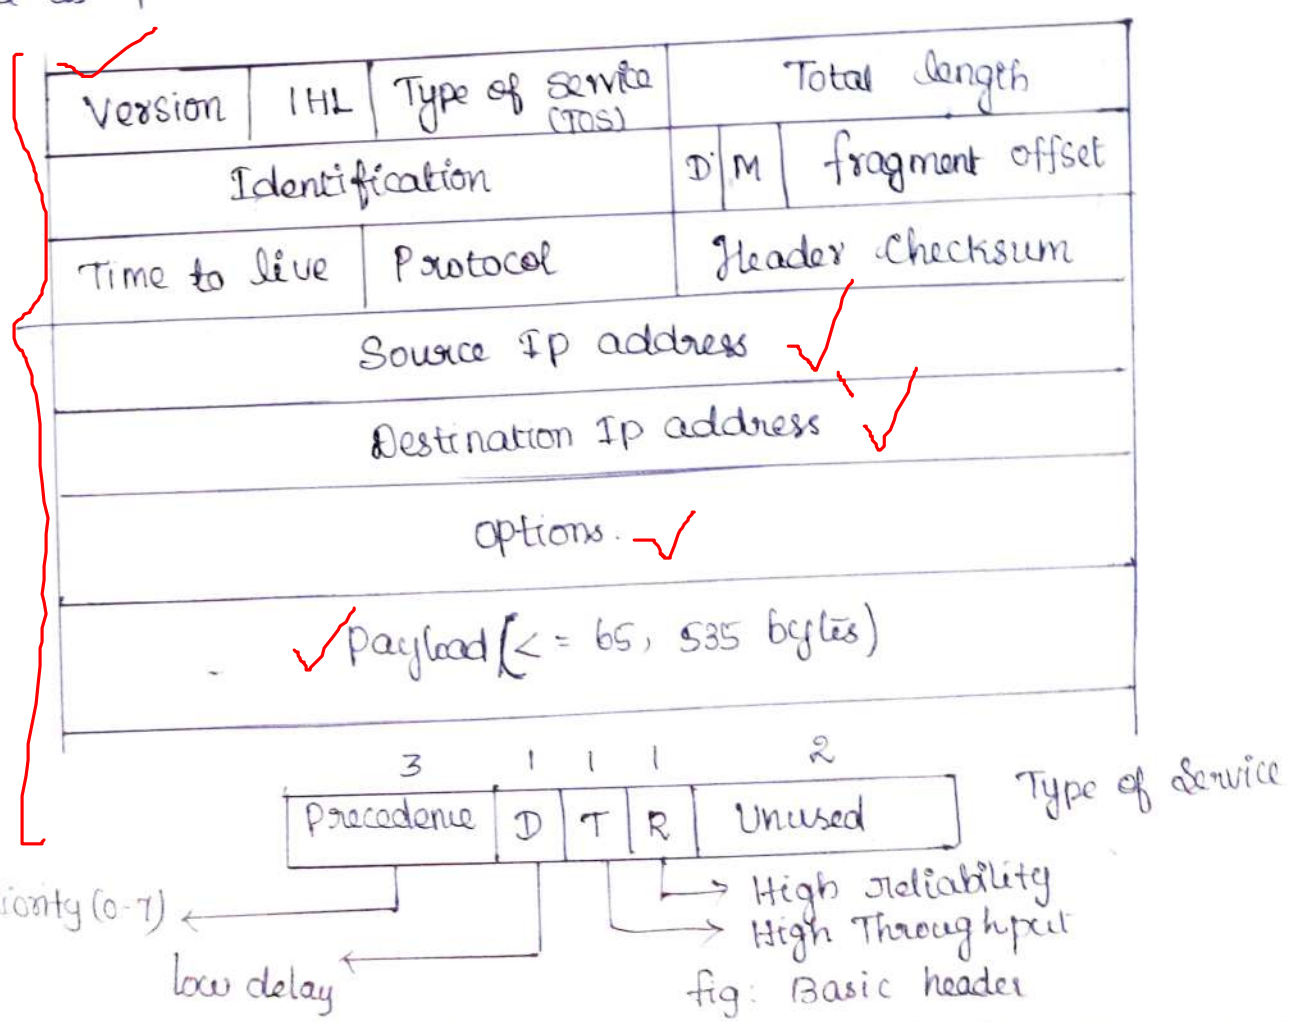 Version IHL Type of Service (TOS) Total length
Identification D M fragment offset
Time to live Protocol Header checksum
Source Ip address
Destination Ip address
options.
Payload (<= 65, 535 bytes)
3 1 1 1 2
Precedence D T R Unused Type of Service
High reliability
iority (0-7)
High Throughput
low delay
fig: Basic header